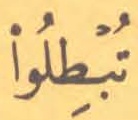 تُبْطِلُوا۟